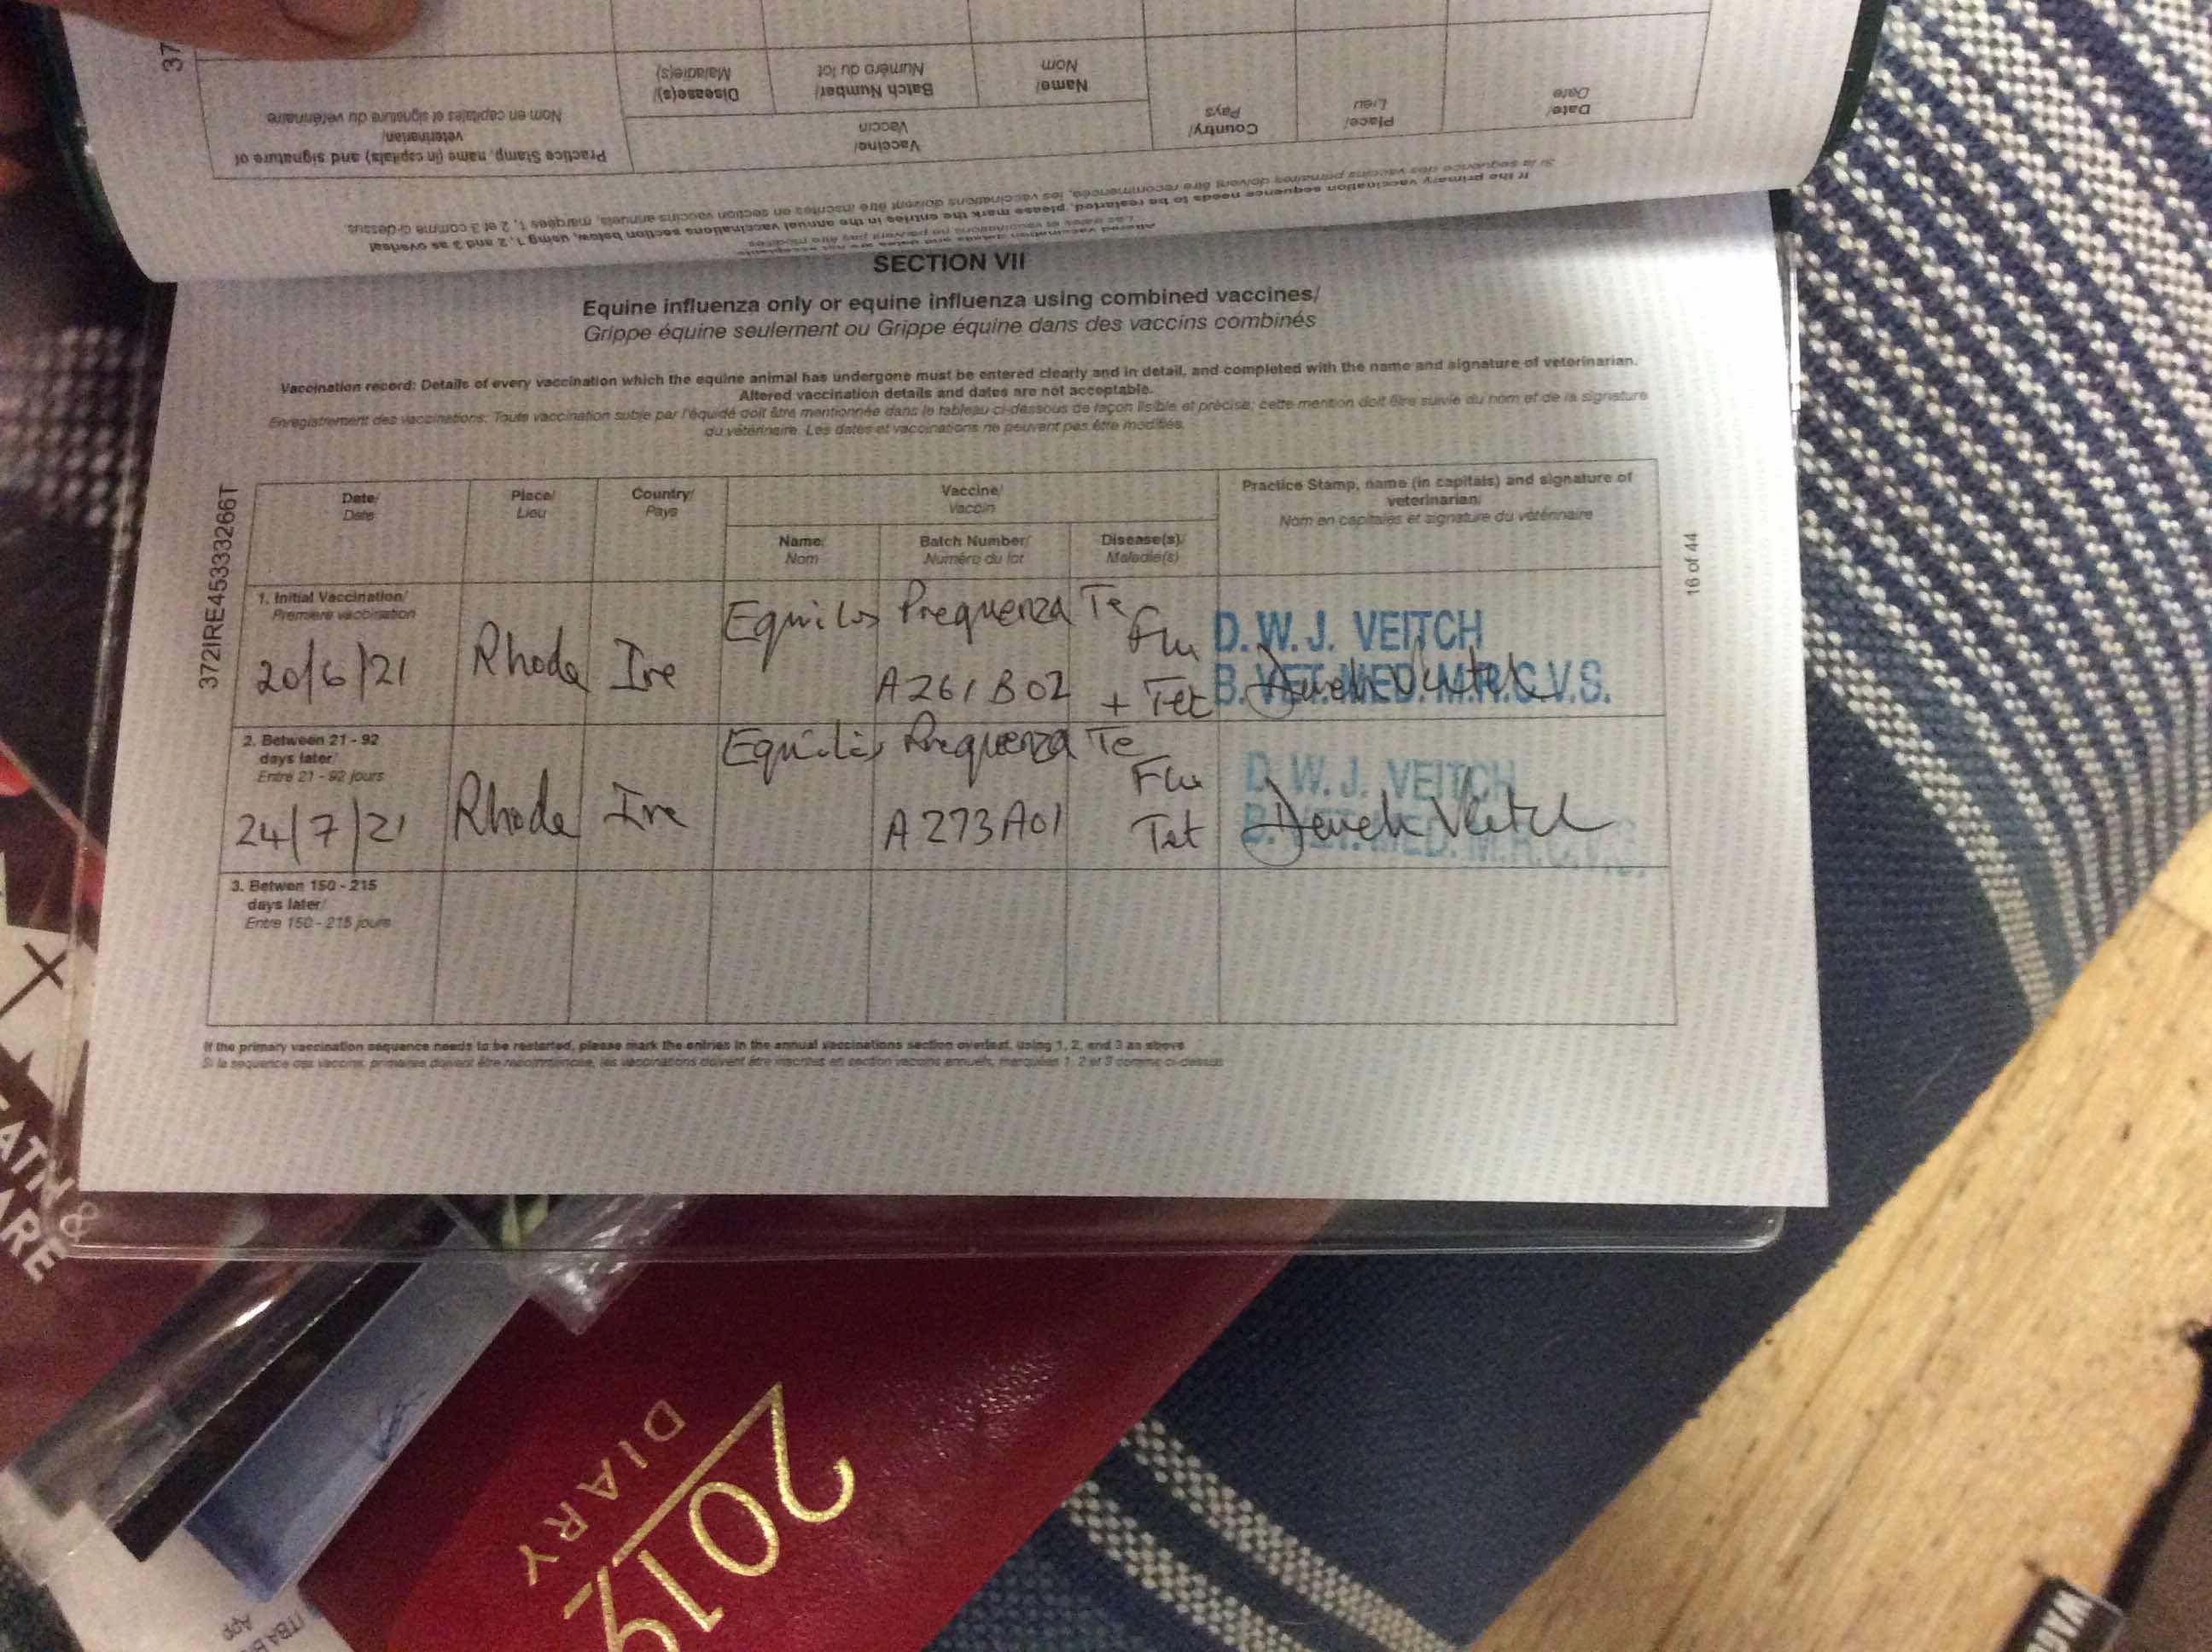 37
Practice Stamp, name (in capitals) and signature of
veterinarian/
Nom en capitales et signature du vétérinaire
Vaccine/
Vaccin
Disease(s)/
Maladie(s)
Batch Number/
Numéro du lot
Name/
Nom
Country/
Pays
Place/
Lieu
Date/
Date
If the primary vaccination sequence needs to be restarted, please mark the entries in the annual vaccinations section below, using 1, 2 and 3 as overleaf
Si la sequence des vaccins primaires doivent être recommencée, les vaccinations doivent être inscrites en section vaccins annuels, marquées 1, 2 et 3 comme ci-dessus
Altered vaccination details and dates are not acceptable.
Les dates et vaccinations ne peuvent pas être modifiés
SECTION VII
Equine influenza only or equine influenza using combined vaccines/
Grippe équine seulement ou Grippe équine dans des vaccins combinés
Vaccination record: Details of every vaccination which the equine animal has undergone must be entered clearly and in detail, and completed with the name and signature of veterinarian.
Altered vaccination details and dates are not acceptable.
Enregistrement des vaccinations: Toute vaccination subie par l'équidé doit être mentionnée dans le tableau ci-dessous de façon lisible et précise; cette mention doit être suivie du nom et de la signature
du vétérinaire. Les dates et vaccinations ne peuvent pas être modifiés.
372IRE45333266T
16 of 44
Date/
Date
Place/
Lieu
Country/
Pays
Vaccine/
Vaccin
Practice Stamp, name (in capitals) and signature of
veterinarian/
Nom en capitales et signature du vétérinaire
Name/
Nom
Batch Number/
Numéro du lot
Disease(s)/
Maladie(s)
1. Initial Vaccination/
Premiere vaccination
20/6/21
Rhode
Ire
Equilis Prequenza Te
A261B02
Flu
+ Tet
D. W. J. VEITCH
B. VET. MED. M.R.C.V.S.
Derek Veitch
2. Between 21 - 92
days later/
Entré 21 - 92 jours
24/7/21
Rhode
Ire
Equilis Prequenza Te
A273A01
Flu
Tet
D. W. J. VEITCH
B. VET. MED. M.R.C.V.S.
Derek Veitch
3. Betwen 150 - 215
days later/
Entre 150 - 215 jours
If the primary vaccination sequence needs to be restarted, please mark the entries in the annual vaccinations section overleaf, using 1, 2, and 3 as above
Si la sequence des vaccins primaires doivent être recommencée, les vaccinations doivent être inscrites en section vaccins annuels, marquées 1, 2 et 3 comme ci-dessus
2019
DIARY
&
ARE
App